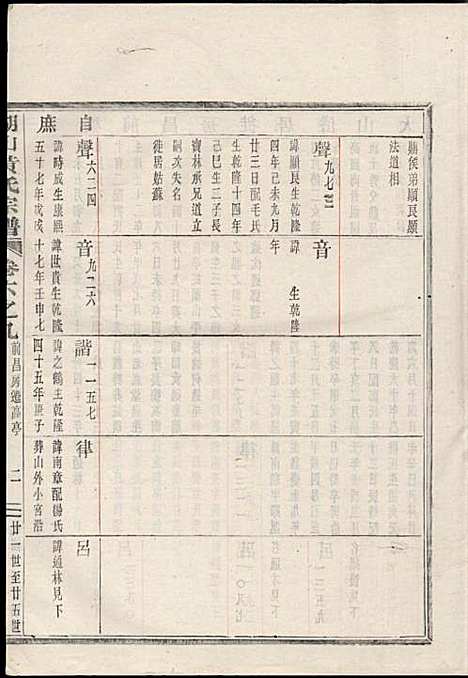 顯侯弟顯良顯
法道相
聲九七二
諱顯良生乾隆
四年己未九月
廿三日配毛氏
生乾隆十四年
己巳生三子長
寶林承兄道立
次名失攷
徙居姑蘇
音
諱　生乾隆
自　庶
聲六二四
諱時成生康熙
五十七年戊戌
音九二六
諱世貴生乾隆
十七年壬申七
諧一一五七
諱之鶴生乾隆
四十五年庚子
律
諱南章配楊氏
葬山外小宮沿
呂
諱通林見下
山黃氏宗譜
卷六之九
前昌房遷高亭
二
廿一世至廿五世